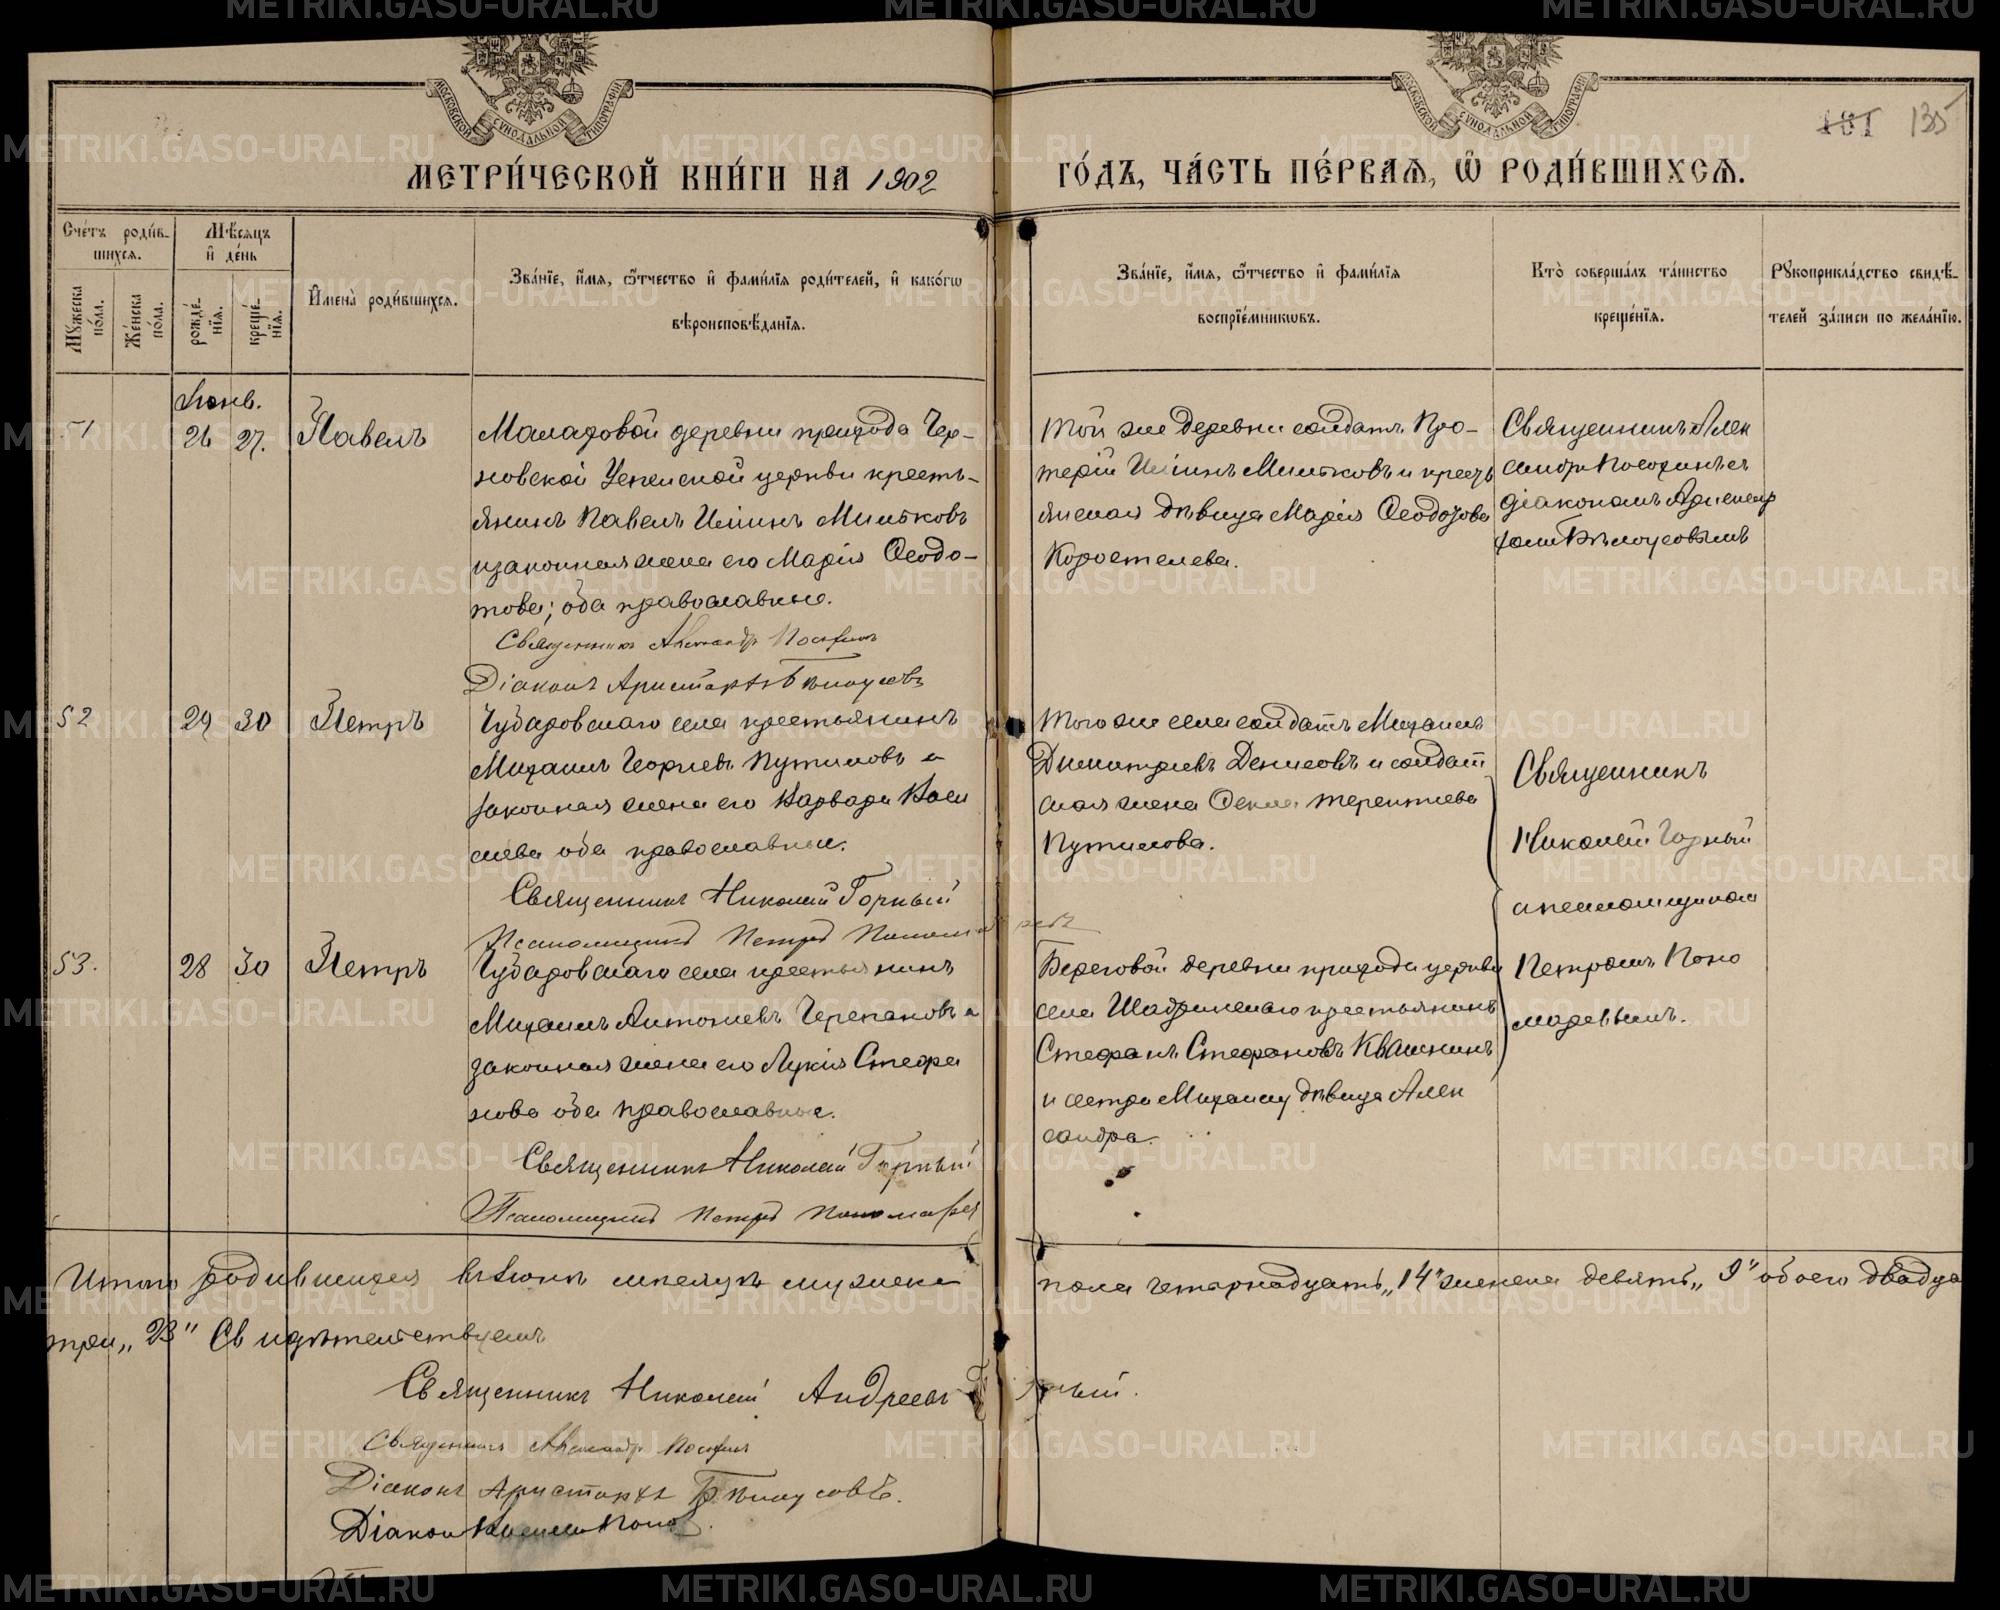 METRIKI.GASO-URAL.RU
МОСКОВСКОЙ СѴНОДАЛЬНОЙ ТИПОГРАФІИ
МОСКОВСКОЙ СѴНОДАЛЬНОЙ ТИПОГРАФІИ
181 135
МЕТРИ́ЧЕСКОЙ КНИ́ГИ НА 1902
ГО́ДЪ, ЧА́СТЬ ПЕ́РВАѦ, Ѡ РОДИ́ВШИХСѦ.
Сче́тъ роди́в-
шихсѧ.
Мꙋ́жеска по́ла.
Же́нска по́ла.
Мѣ́сѧцъ и де́нь
рожде́-нїѧ.
креще́-нїѧ.
Имена̀ роди́вшихсѧ.
Зва́нїе, и́мѧ, ѻ́тчество и фами́лїѧ роди́телей, и како́гѡ
вѣроисповѣ́данїѧ.
Зва́нїе, и́мѧ, ѻ́тчество и фами́лїѧ
воспрїе́мникѡвъ.
Кто̀ соверша́лъ та́инство
креще́нїѧ.
Рꙋкоприкла́дство свидѣ́-
телей за́писи по жела́нїю.
Іюнь.
51
26 27.
Павелъ
деревни прихода Чер-
новской Успенской церкви кресть-
янинъ Павелъ
и законная жена его Марія Ѳеодо-
това; оба православные.
Священникъ Александръ
Діаконъ Аристархъ Бѣлоусовъ
Той же деревни солдатъ Про-
терій и кресть
янская дѣвица Марія
Коростелева.
Священникъ Алек
сандръ съ
діакономъ Аристар
хомъ Бѣлоусовымъ
52
29 30
Петръ
Чубаровскаго села крестьянинъ
Михаилъ Георгіевъ Путиловъ и
законная жена его Варвара Васи
льева оба православные.
Священникъ Николай Горный
Псаломщикъ Петръ Пономаревъ
Того же села солдатъ Михаилъ
Димитріевъ Денисовъ и солдат
ская жена Ѳекла Терентіева
Путилова.
Священникъ
Николай Горный
съ псаломщикомъ
Петромъ Поно
маревымъ.
53.
28 30
Петръ
Чубаровскаго села крестьянинъ
Михаилъ Антоніевъ Черепановъ и
законная жена его Лукія Стефа
нова оба православные.
Священникъ Николай Горный
Псаломщикъ Петръ Пономарев
Береговой деревни прихода церкви
села Шадринскаго крестьянинъ
Стефанъ Стефановъ Квашнинъ
и сестра Михаилу дѣвица Алек
сандра.
Итого родившихся въ Іюнѣ мѣсяцѣ мужска
пола четырнадцать „14" женска девять „9" обоего двадца
три „23" Свидѣтельствуемъ
Священникъ Николай Андреевъ Горный.
Священникъ Александръ
Діаконъ Аристархъ Бѣлоусовъ.
Діаконъ